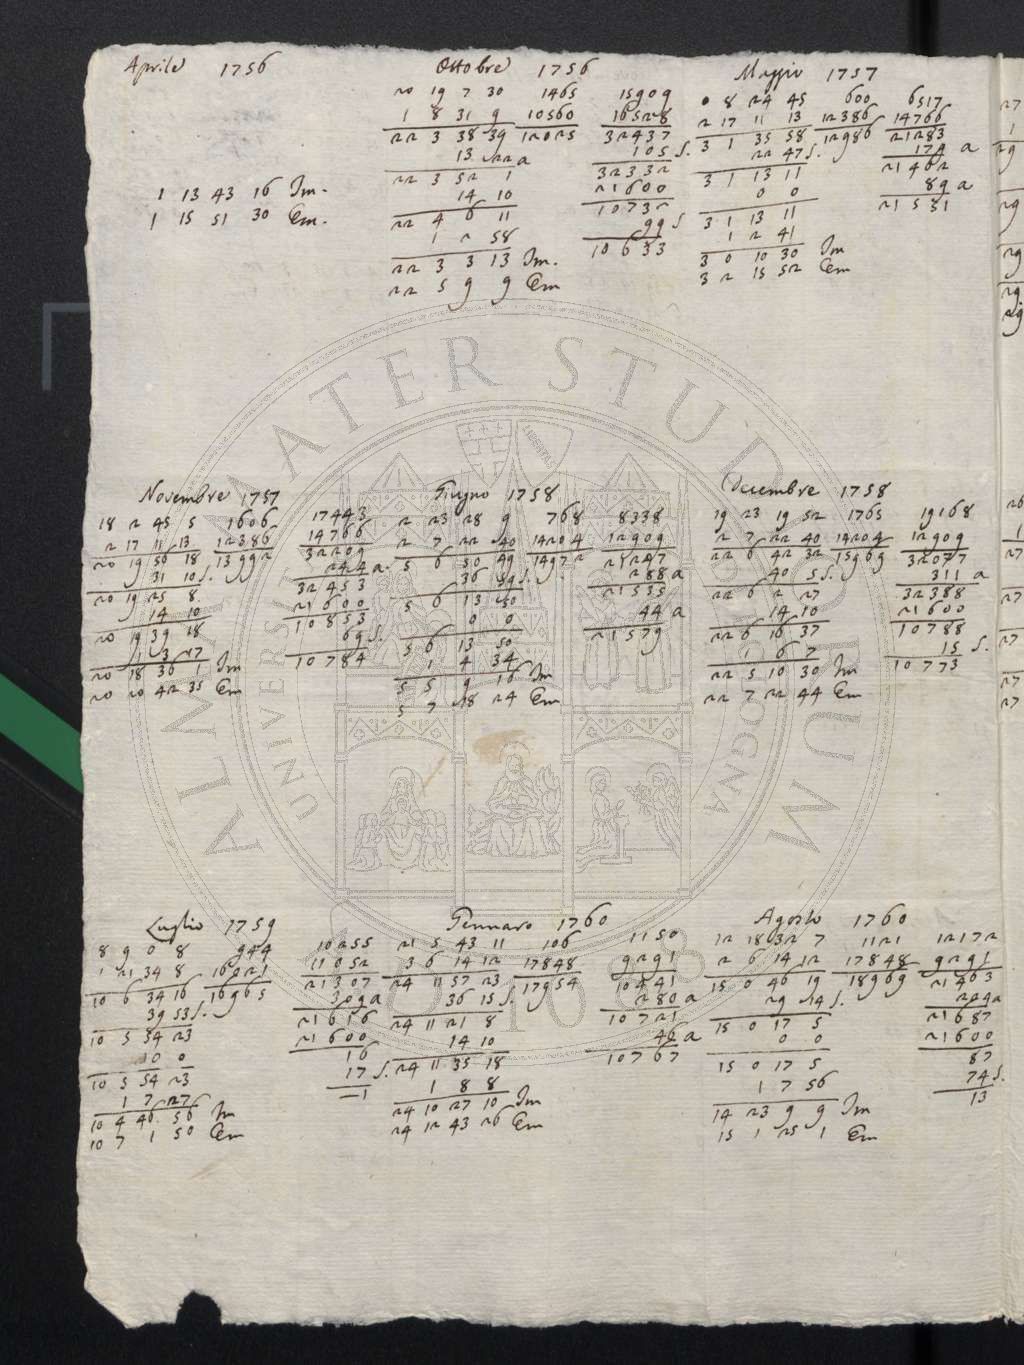 Aprile 1756
1 13 43 16 Im.
1 15 51 30 Em.
Ottobre 1756
20 19 7 30 1465 15909
1 8 31 9 10560 16528
22 3 38 39 12025 32437
13 22 a 105 S.
22 3 52 1 32332
14 10 21600
22 4 6 11 10732
1 2 58 99 S
22 3 3 13 Im. 10633
22 5 9 9 Em
Maggio 1757
0 8 24 45 600 6517
2 17 11 13 12386 14766
3 1 35 58 12986 21283
22 47 S. 179 a
3 1 13 11 21462
0 0 69 a
3 1 13 11 21531
1 2 41
3 0 10 30 Im
3 2 15 52 Em
Novembre 1757
18 2 45 5 1606 17443
2 17 11 13 12386 14766
20 19 56 18 13992 32209
31 10 S. 244 a
20 19 25 8 32453
14 10 21600
20 19 39 18 10853
1 3 17 69 S.
20 18 36 1 Im 10784
20 20 42 35 Em
Giugno 1758
2 23 28 9 768 8338
2 7 22 40 14204 12909
5 6 50 49 14972 21247
36 59 S. 288 a
5 6 13 50 21535
0 0 44 a
5 6 13 50 21579
1 4 34
5 5 9 16 Im
5 7 18 24 Em
Decembre 1758
19 23 19 52 1765 19168
2 7 22 40 14204 12909
22 6 42 32 15969 32077
40 5 S. 311 a
22 6 2 27 32388
14 10 21600
22 6 16 37 10788
1 6 7 15 S.
22 5 10 30 Im 10773
22 7 22 44 Em
Luglio 1759
8 9 0 8 944 10255
1 21 34 8 16021 11052
10 6 34 16 16965 21307
39 53 S. 309 a
10 5 54 23 21616
0 0 21600
10 5 54 23 16
1 7 27 17 S.
10 4 46 56 Im -1
10 7 1 50 Em
Gennaro 1760
21 5 43 11 106 1150
3 6 14 12 17848 9291
24 11 57 23 17954 10441
36 15 S. 280 a
24 11 21 8 10721
14 10 46 a
24 11 35 18 10767
1 8 8
24 10 27 10 Im
24 12 43 26 Em
Agosto 1760
12 18 32 7 1121 12172
2 6 14 12 17848 9291
15 0 46 19 18969 21463
29 14 S. 224 a
15 0 17 5 21687
0 0 21600
15 0 17 5 87
1 7 56 74 S.
14 23 9 9 Im 13
15 1 25 1 Em
ALMA MATER STUDIORUM
UNIVERSITÀ DI BOLOGNA
LIBERTAS